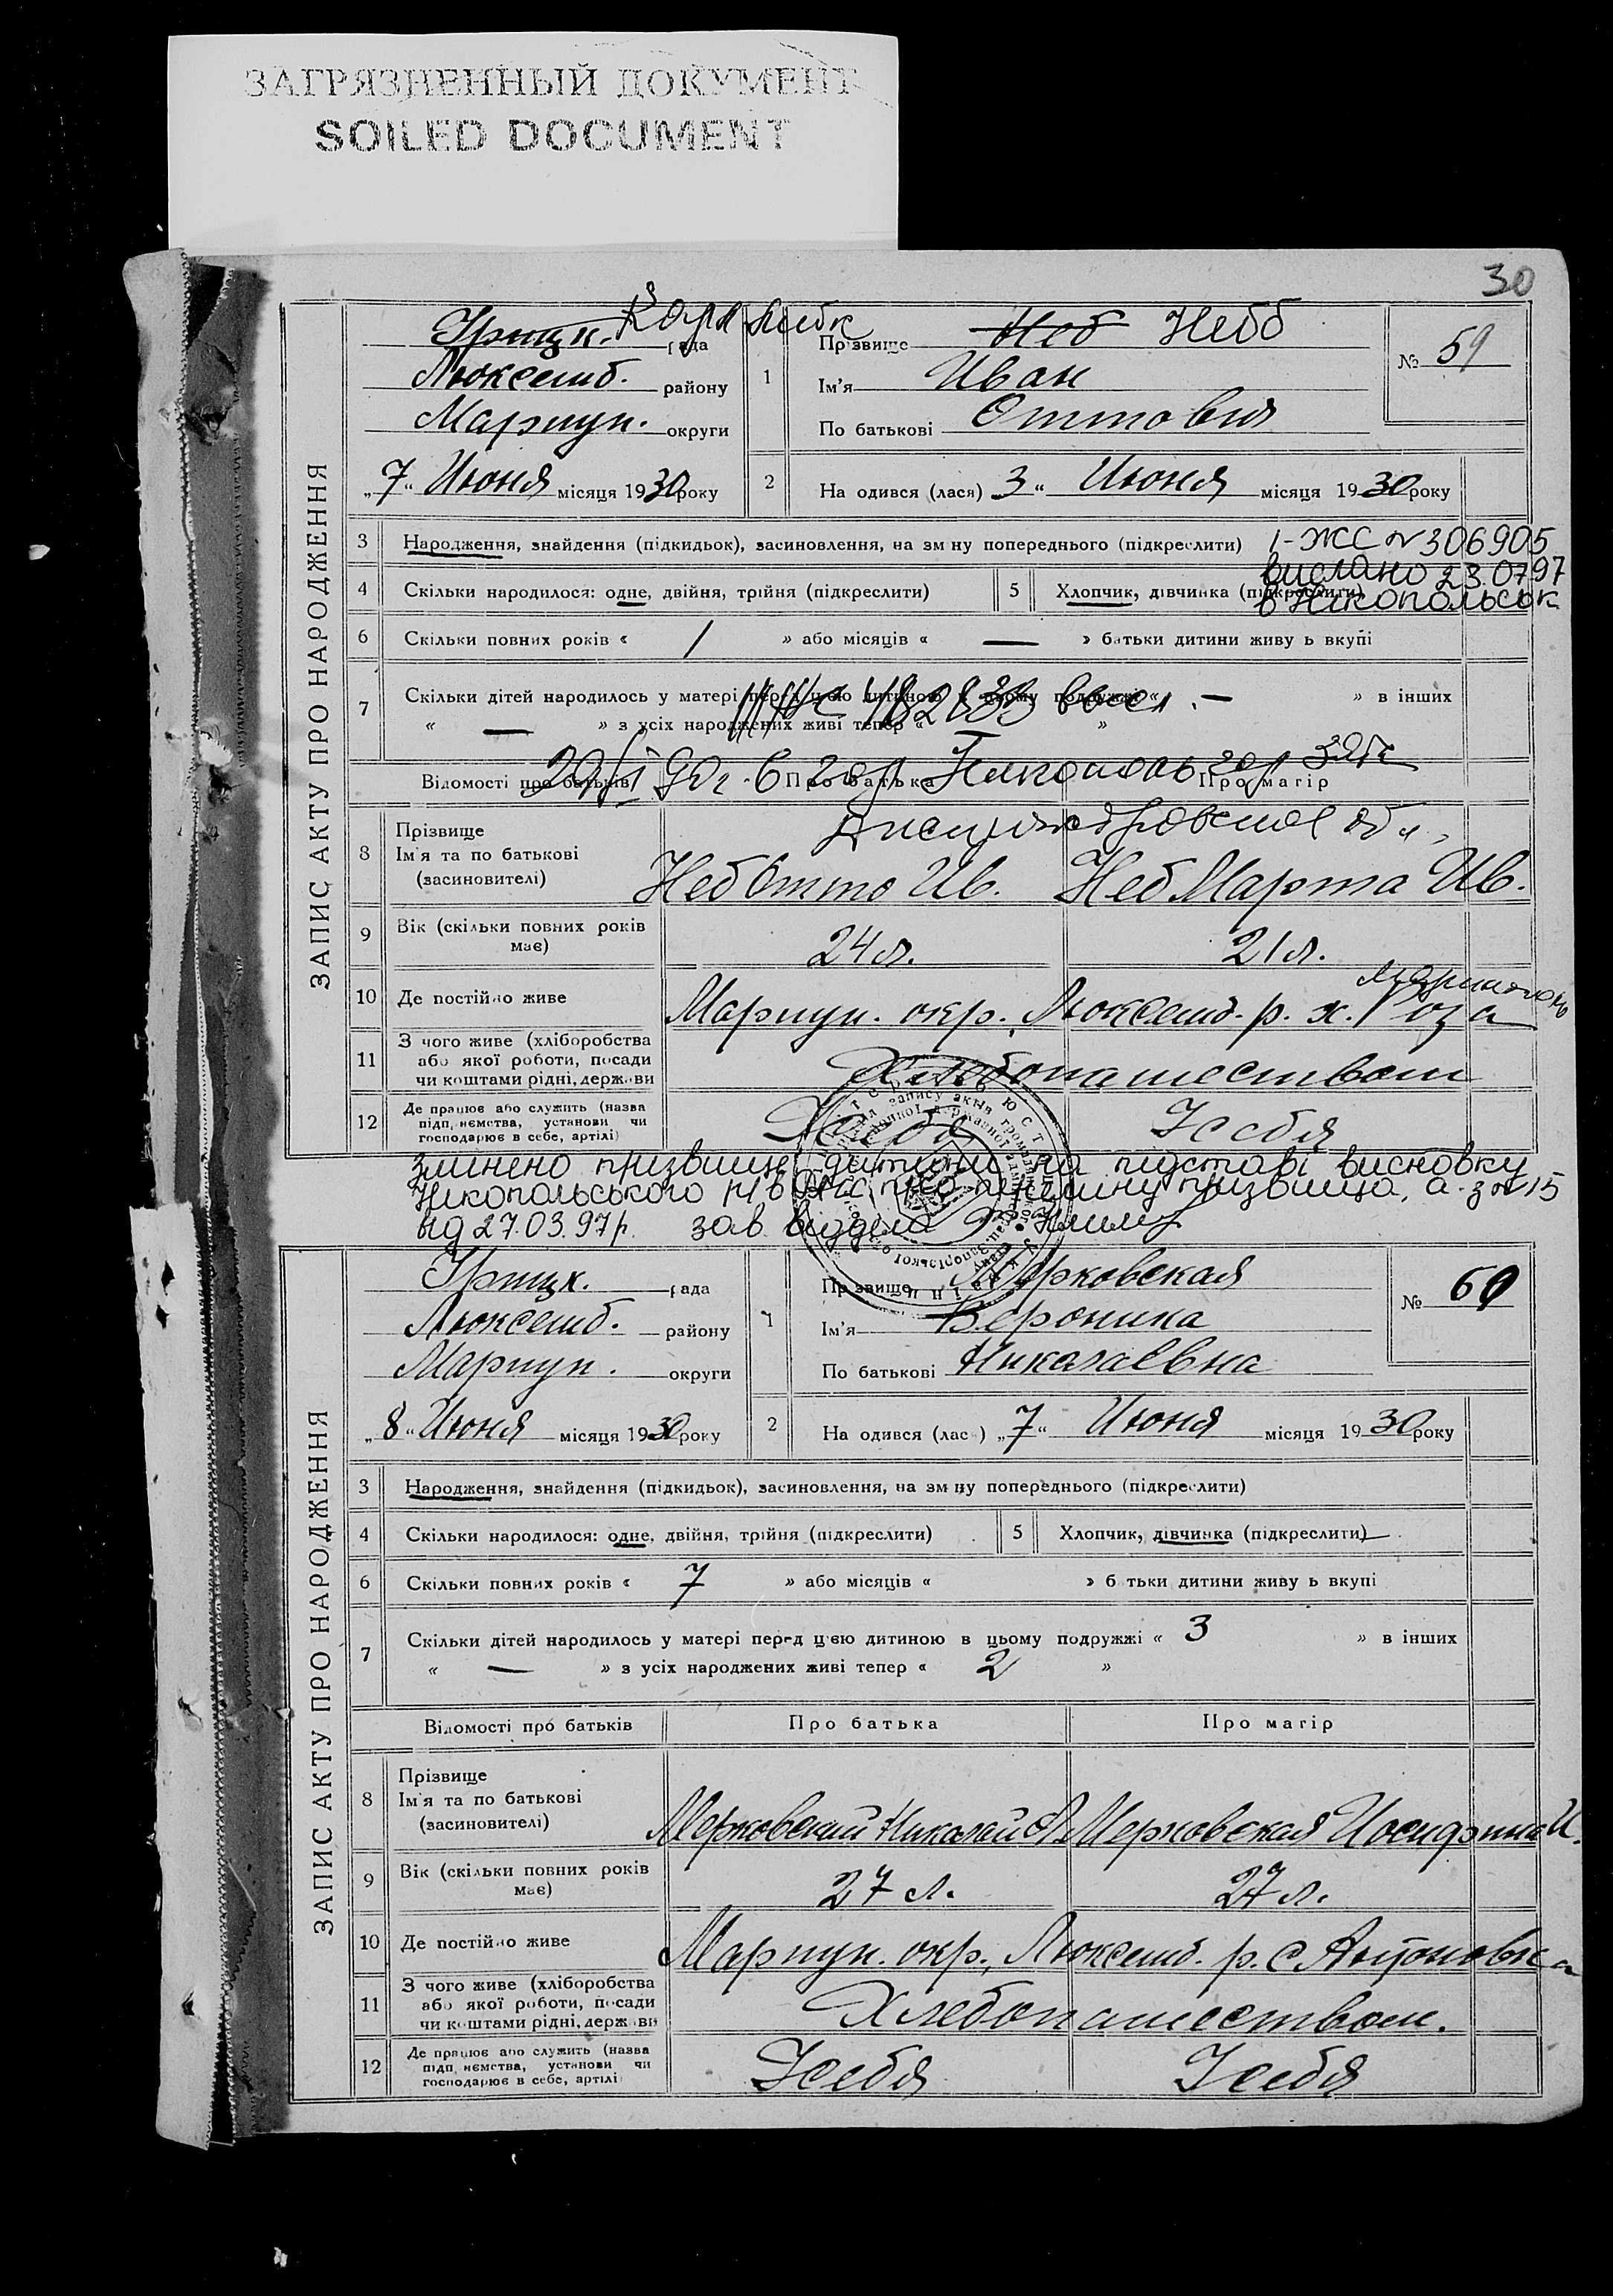 ЗАГРЯЗНЕННЫЙ ДОКУМЕНТ
SOILED DOCUMENT
30
ЗАПИС АКТУ ПРО НАРОДЖЕННЯ
рада
Люксемб. району
Мариуп. округи
„7“ Июня місяця 1930 року
1
Прізвище Неб Небб
Ім'я Иван
По батькові Оттовия
№ 59
2
На одився (лася) 3“ Июня місяця 1930 року
3 Народження, знайдення (підкидьок), засиновлення, на зм ну попереднього (підкреслити)
І-ЖС № 306905
вислано 23.07.97
в Нікопольськ
4 Скільки народилося: одне, двійня, трійня (підкреслити) 5 Хлопчик, дівчинка (підкреслити)
6 Скільки повних років « 1 » або місяців « — » батьки дитини живу ь вкупі
7 Скільки дітей народилось у матері перед цією дитиною в цьому подружжі « — » в інших
« — » з усіх народжених живі тепер « »
Відомості про батьків Про батька Про матір
8 Прізвище
Ім'я та по батькові
(засновителі)
Неб Отто Ив. Неб Марта Ив.
9 Вік (скільки повних років
має)
24 л. 21 л.
10 Де постійно живе Мариуп. окр., Люксемб. р. х. Роза
11 З чого живе (хліборобства
або якої роботи, посади
чи коштами рідні, держави
Хлебопашеством
12 Де працює або служить (назва
підп, иємства, установи чи
господарює в себе, артілі)
Усебя Усебя
змінено прізвище дитини на підставі висновку
Нікопольського про переміну прізвища, а-з №15
від 27.03.97р. зав. відділа
ЗАПИС АКТУ ПРО НАРОДЖЕННЯ
рада
Люксемб. району
Мариуп. округи
„8“ Июня місяця 1930 року
1
Прізвище Мерковская
Ім'я Вероника
По батькові Николаевна
№ 60
2
На одився (лас ) „7“ Июня місяця 1930 року
3 Народження, знайдення (підкидьок), засиновлення, на зм ну попереднього (підкреслити)
4 Скільки народилося: одне, двійня, трійня (підкреслити) 5 Хлопчик, дівчинка (підкреслити)
6 Скільки повних років « 7 » або місяців « » б тьки дитини живу ь вкупі
7 Скільки дітей народилось у матері перед цією дитиною в цьому подружжі « 3 » в інших
« — » з усіх народжених живі тепер « 2 »
Відомості про батьків Про батька Про матір
8 Прізвище
Ім'я та по батькові
(засиновителі)
Мерковский Николай А. Мерковская Иосифина И.
9 Вік (скільки повних років
має)
27 л. 27 л.
10 Де постійно живе Мариуп. окр., Люксемб. р. с Антоновка
11 З чого живе (хліборобства
або якої роботи, посади
чи коштами рідні, держ ви
Хлебопашеством.
12 Де працює або служить (назва
підп, иємства, установи чи
господарює в себе, артілі
Усебя Усебя